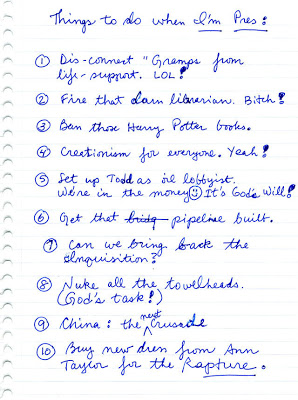 Things to do when I'm Pres:
① Dis-connect "Gramps from
life-support. LOL!
② Fire that darn librarian. Bitch!
③ Ban those Harry Potter books.
④ Creationism for everyone. Yeah!
⑤ Set up Todd as oil lobbyist.
We're in the money☺ It's God's Will!
⑥ Get that bridg pipeline built.
⑦ Can we bring back the
Inquisition?
⑧ Nuke all the towelheads.
(God's task!)
⑨ China: the next Crusade
⑩ Buy new dress from Ann
Taylor for the Rapture.